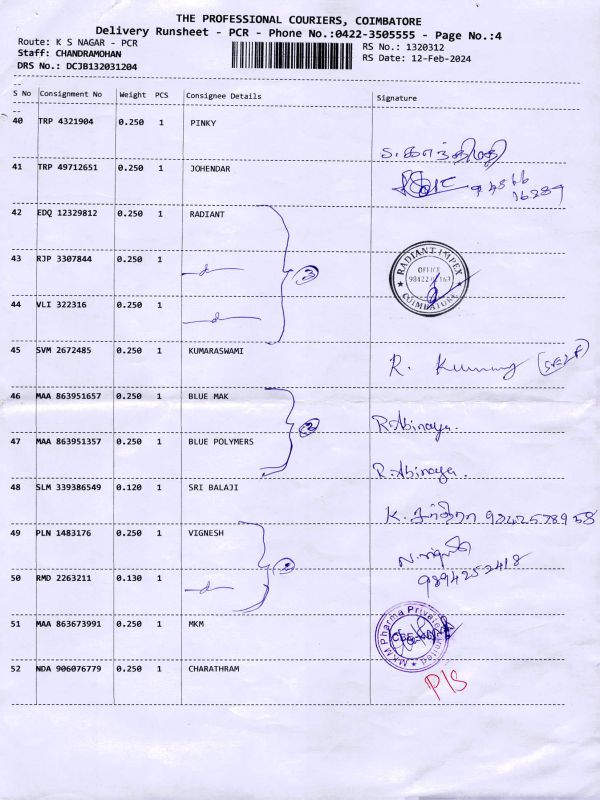 THE PROFESSIONAL COURIERS, COIMBATORE
Delivery Runsheet - PCR - Phone No.:0422-3505555 - Page No.:4
Route: K S NAGAR - PCR
RS No.: 1320312
Staff: CHANDRAMOHAN
RS Date: 12-Feb-2024
DRS No.: DCJB132031204
S No Consignment No Weight PCS Consignee Details Signature
40 TRP 4321904 0.250 1 PINKY
41 TRP 49712651 0.250 1 JOHENDAR
42 EDQ 12329812 0.250 1 RADIANT
43 RJP 3307844 0.250 1
3
RADIANT IMPEX
OFFICE
COIMBATORE
44 VLI 322316 0.250 1
45 SVM 2672485 0.250 1 KUMARASWAMI
R. (SELF)
46 MAA 863951657 0.250 1 BLUE MAK
2
R.Abinaya.
47 MAA 863951357 0.250 1 BLUE POLYMERS
R.Abinaya.
48 SLM 339386549 0.120 1 SRI BALAJI
K. 9842578958
49 PLN 1483176 0.250 1 VIGNESH
50 RMD 2263211 0.130 1
2
9894252418
51 MAA 863673991 0.250 1 MKM
MKM Pharma Private Limited
52 NDA 906076779 0.250 1 CHARATHRAM
P/S